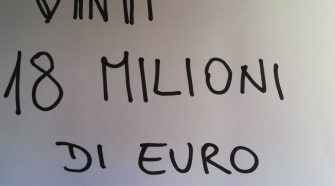 VINTI
18 MILIONI
DI EURO